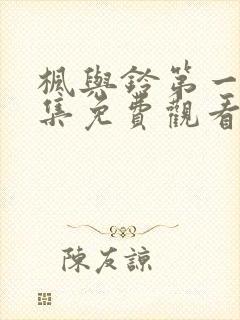 楓與鈴第一
集免費觀看
陳友諒